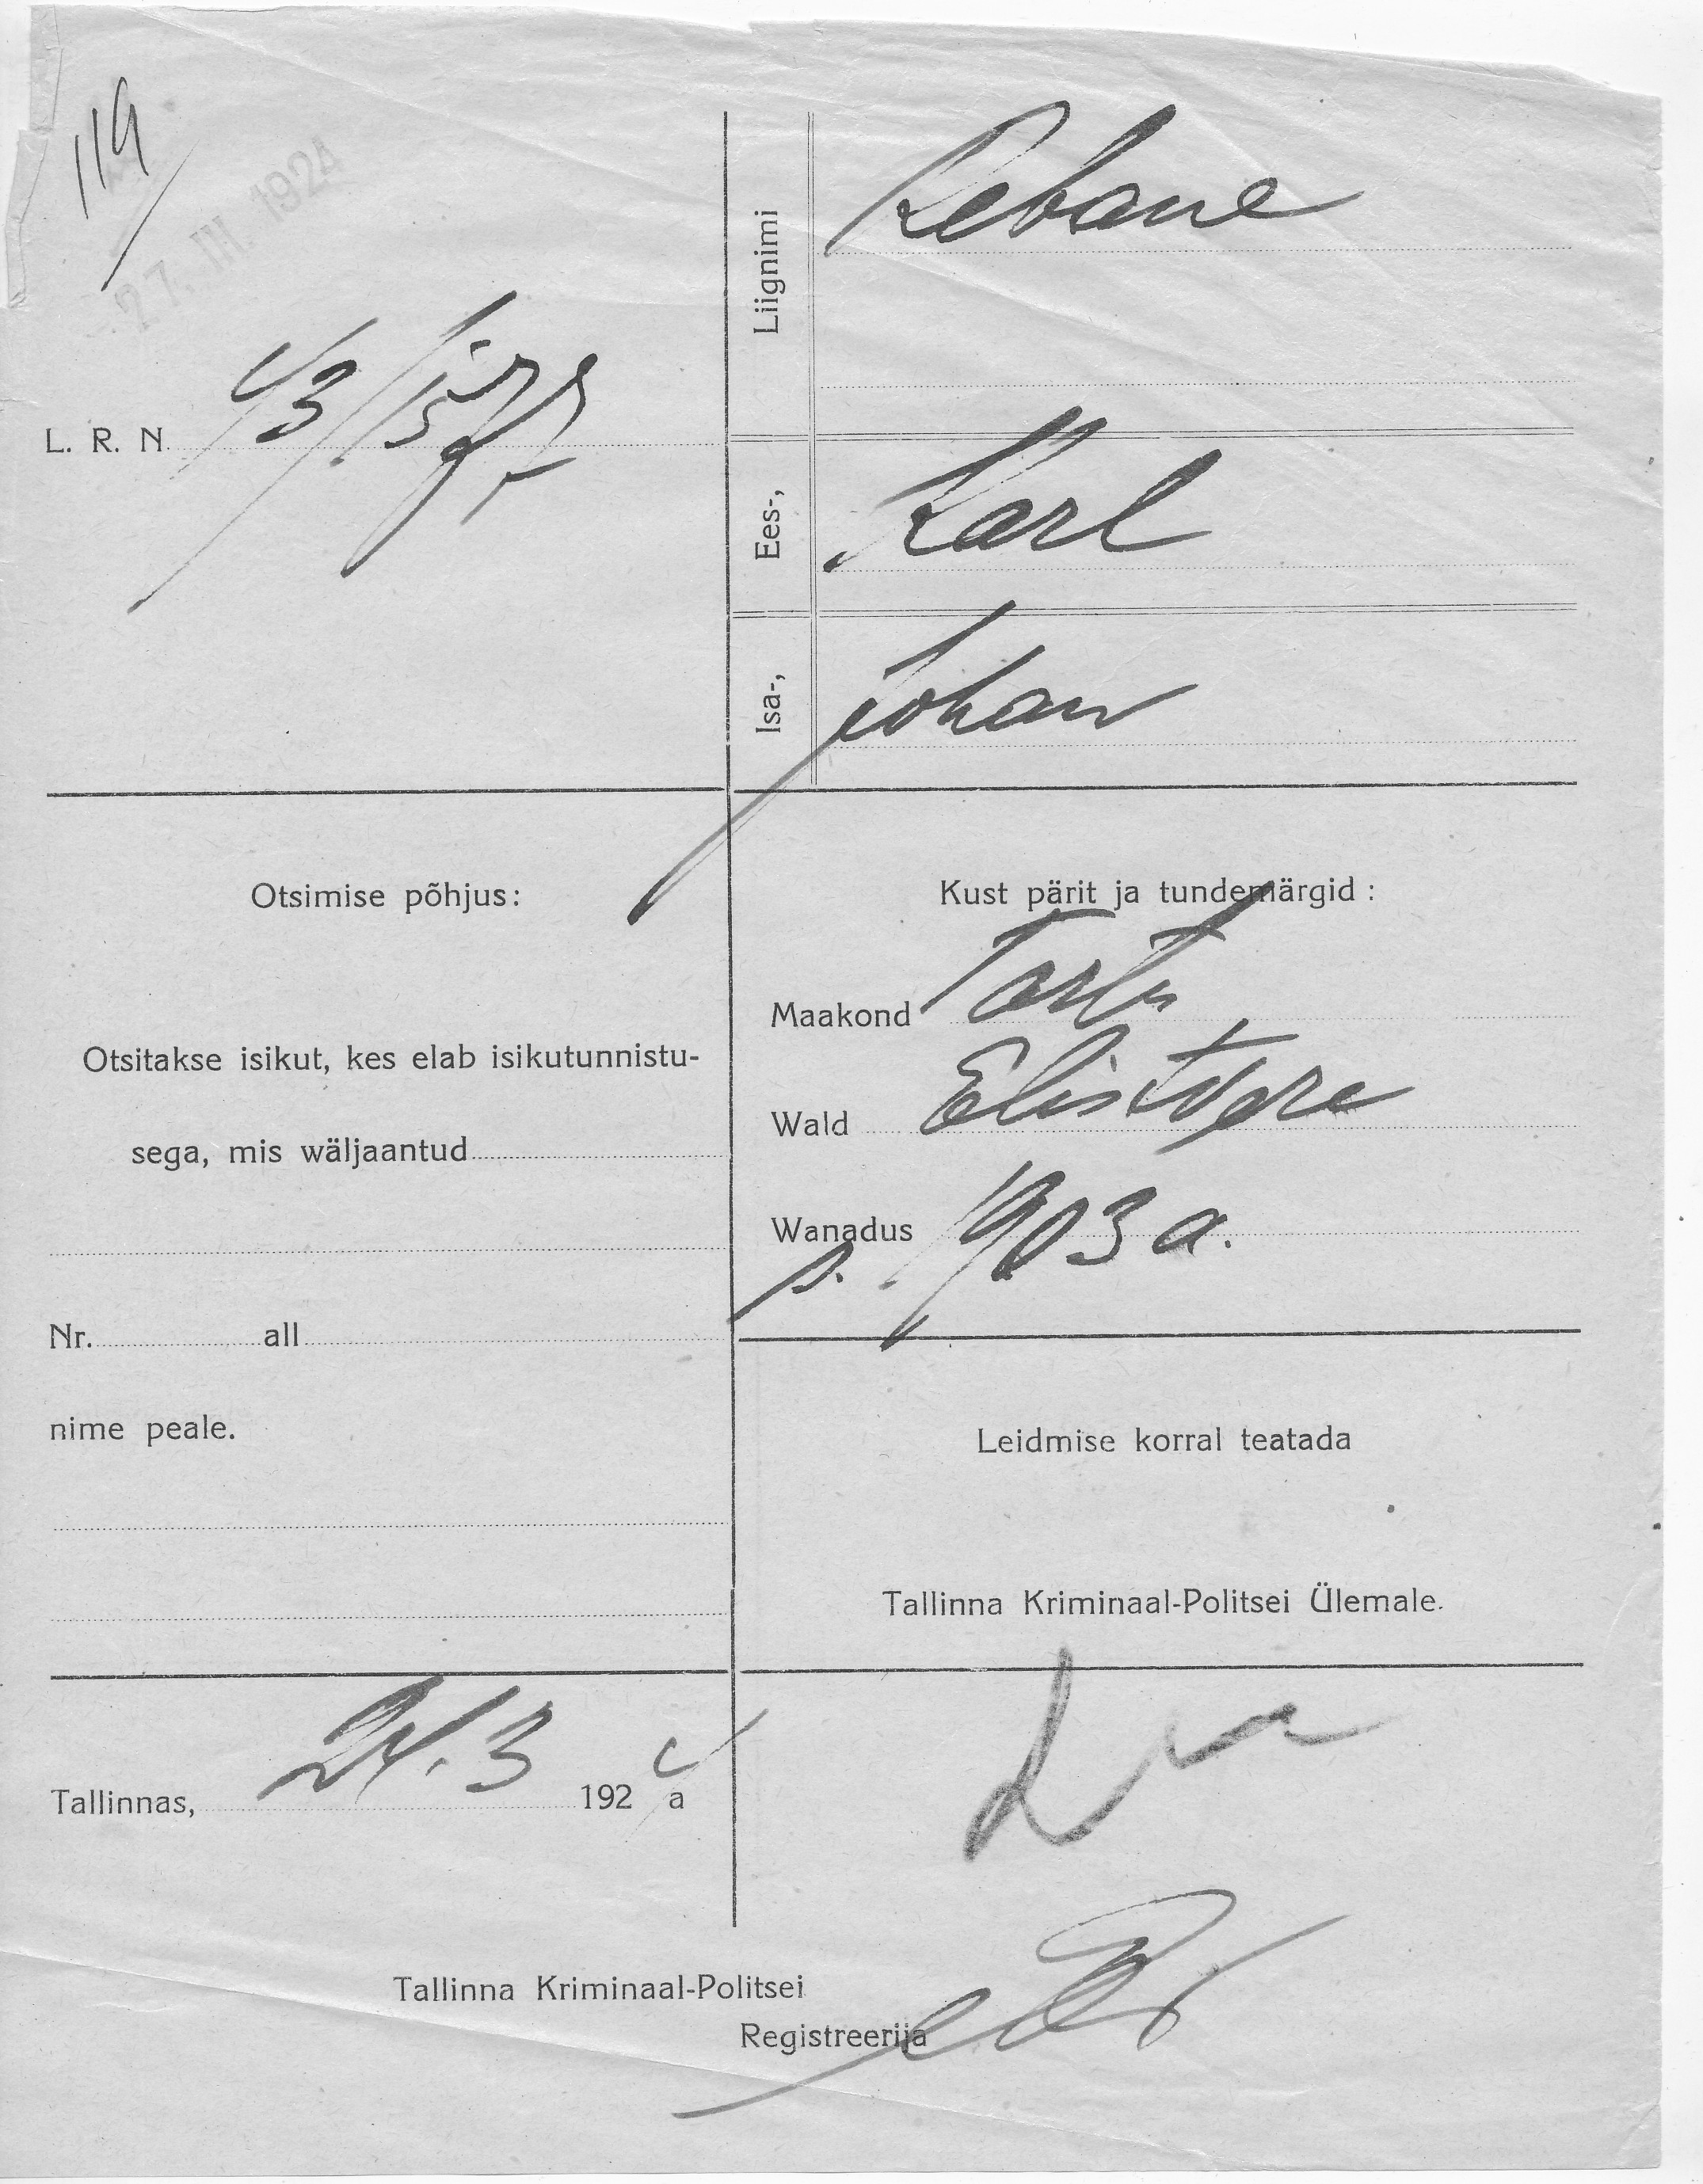 119
27. III 1924
L. R. N.
Liignimi
Rebane
Ees-,
Karl
Isa-,
Johan
Otsimise põhjus:
Otsitakse isikut, kes elab isikutunnistu-
sega, mis wäljaantud
Nr. all
nime peale.
Kust pärit ja tundemärgid:
Maakond Tartu
Wald Elistvere
Wanadus
s. 1903 a.
Leidmise korral teatada
Tallinna Kriminaal-Politsei Ülemale.
Tallinnas, 24. 3 1924 a
Tallinna Kriminaal-Politsei
Registreerija